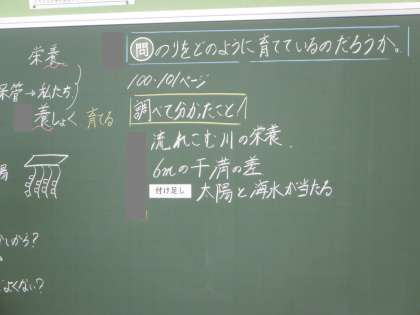 問 のりをどのように育てているのだろうか。
100・101ページ
調べて分かったこと!
流れこむ川の栄養
6mの干満の差
付け足し 太陽と海水が当たる
栄養
保管→私たち
養しょく 育てる
陽
しから?
よくない?